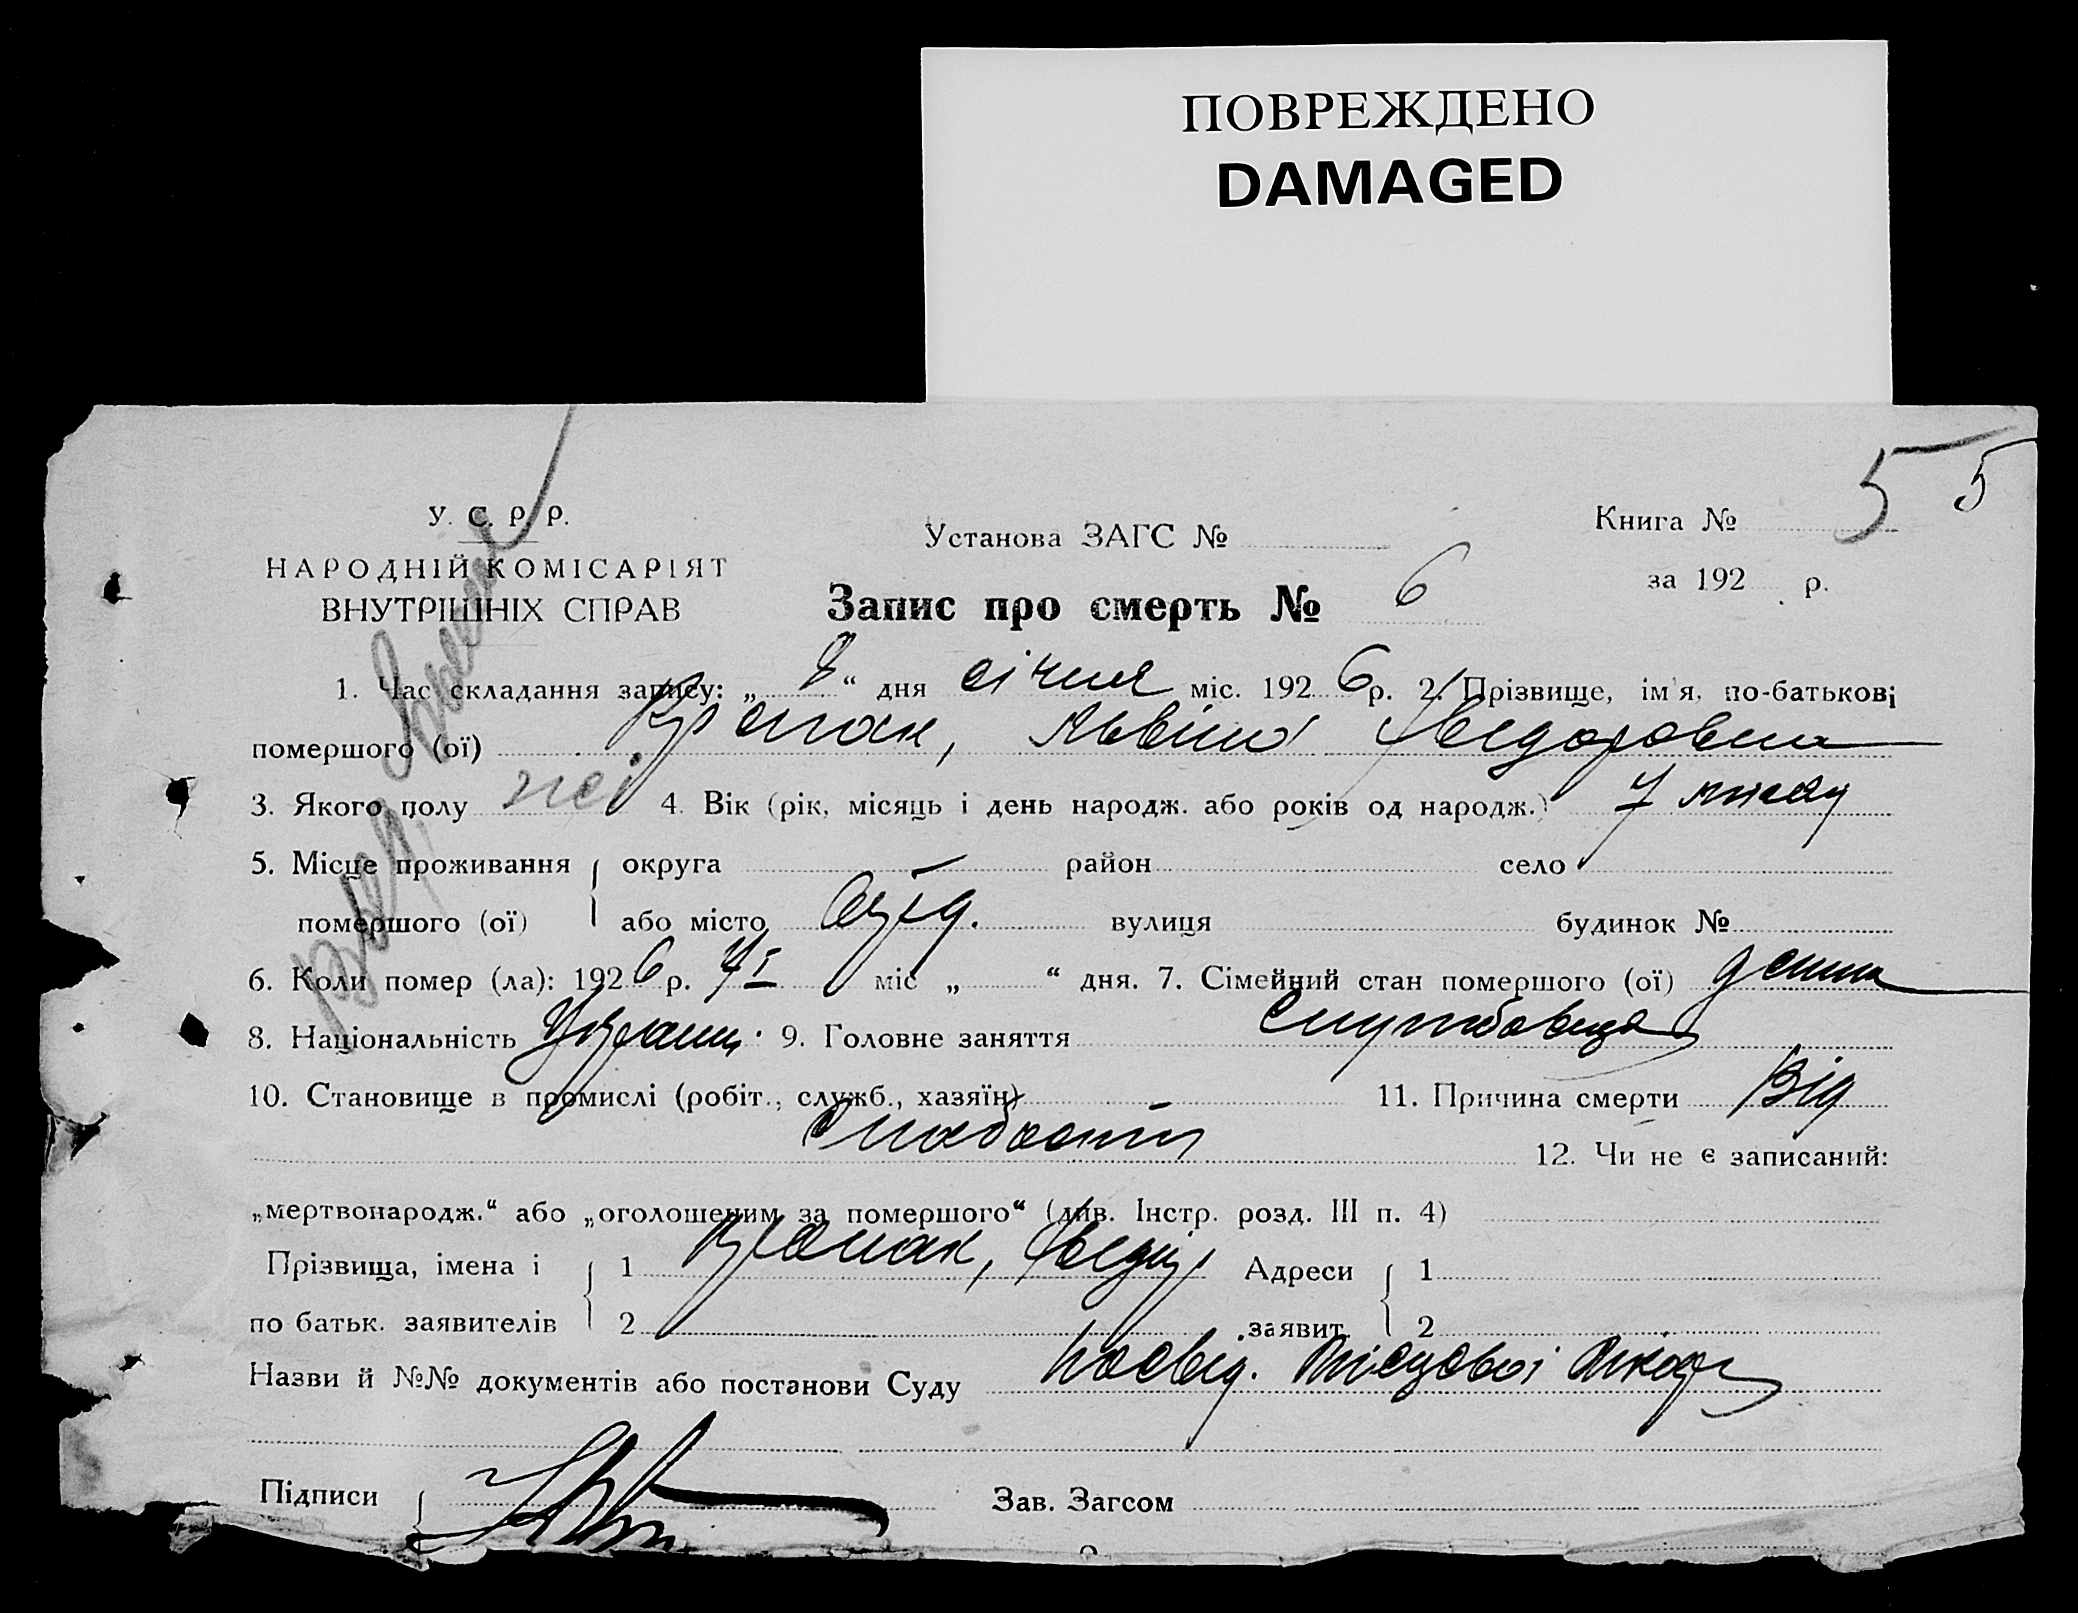 ПОВРЕЖДЕНО
DAMAGED
5 5
У. С. Р. Р.
НАРОДНІЙ КОМІСАРІЯТ
ВНУТРІШНІХ СПРАВ
Установа ЗАГС №
Книга №
за 192 р.
Запис про смерть № 6
1. Час складання запису: „ 8 “ дня січня міс. 192 6 р. 2. Прізвище, ім'я, по-батькові
помершого (ої) Федоровна
3. Якого полу жі 4. Вік (рік, місяць і день народж. або років од народж.) 7
5. Місце проживання округа район село
помершого (ої) або місто вулиця будинок №
6. Коли помер (ла): 192 6 р. 7/I міс „ “ дня. 7. Сімейний стан помершого (ої)
8. Національність Україн. 9. Головне заняття Службовця
10. Становище в промислі (робіт., служб., хазяїн) 11. Причина смерти Від
слабости
12. Чи не є записаний:
„мертвонародж.“ або „оголошеним за помершого“ (див. Інстр. розд. III п. 4)
Прізвища, імена і 1 Федір Адреси 1
по батьк. заявителів 2 заявит. 2
Назви й №№ документів або постанови Суду Посвід. місцової
Підписи Зав. Загсом